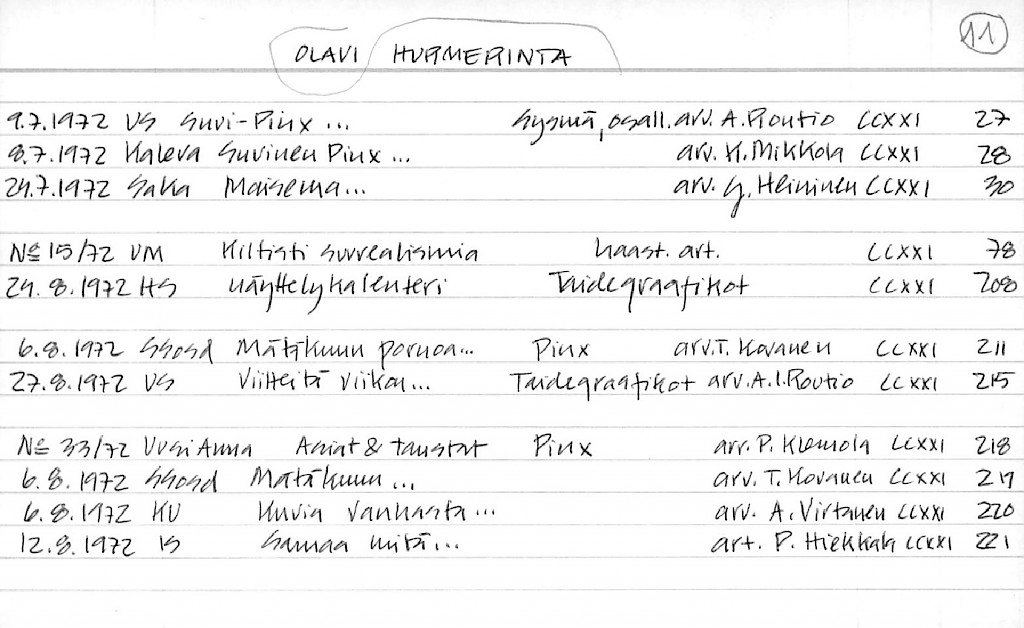 11
OLAVI HURMERINTA
9.7.1972 VS Suvi-Pinx ... Sysmä, osall. arv. A. Routio CCXXI 27
8.7.1972 Kaleva Suvinen Pinx ... arv. K. Mikkola CCXXI 28
24.7.1972 SaKa Maisema... arv. Y. Heininen CCXXI 30
No 15/72 VM Kiltisti surrealismia haast. art. CCXXI 78
24.8.1972 HS Näyttelykalenteri Taidegraafikot CCXXI 208
6.8.1972 SSosd Mätäkuun porua... Pinx arv. T. Kovanen CCXXI 211
27.8.1972 VS Viitteitä viikon... Taidegraafikot arv. A.I. Routio CCXXI 215
No 33/72 Uusi Anna Asiat & taustat Pinx arv. P. Klemola CCXXI 218
6.8.1972 SSosd Mätäkuun ... arv. T. Kovanen CCXXI 219
6.8.1972 KU Kuvia vanhasta... arv. A. Virtanen CCXXI 220
12.8.1972 IS Samaa mitä... art. P. Hiekkala CCXXI 221